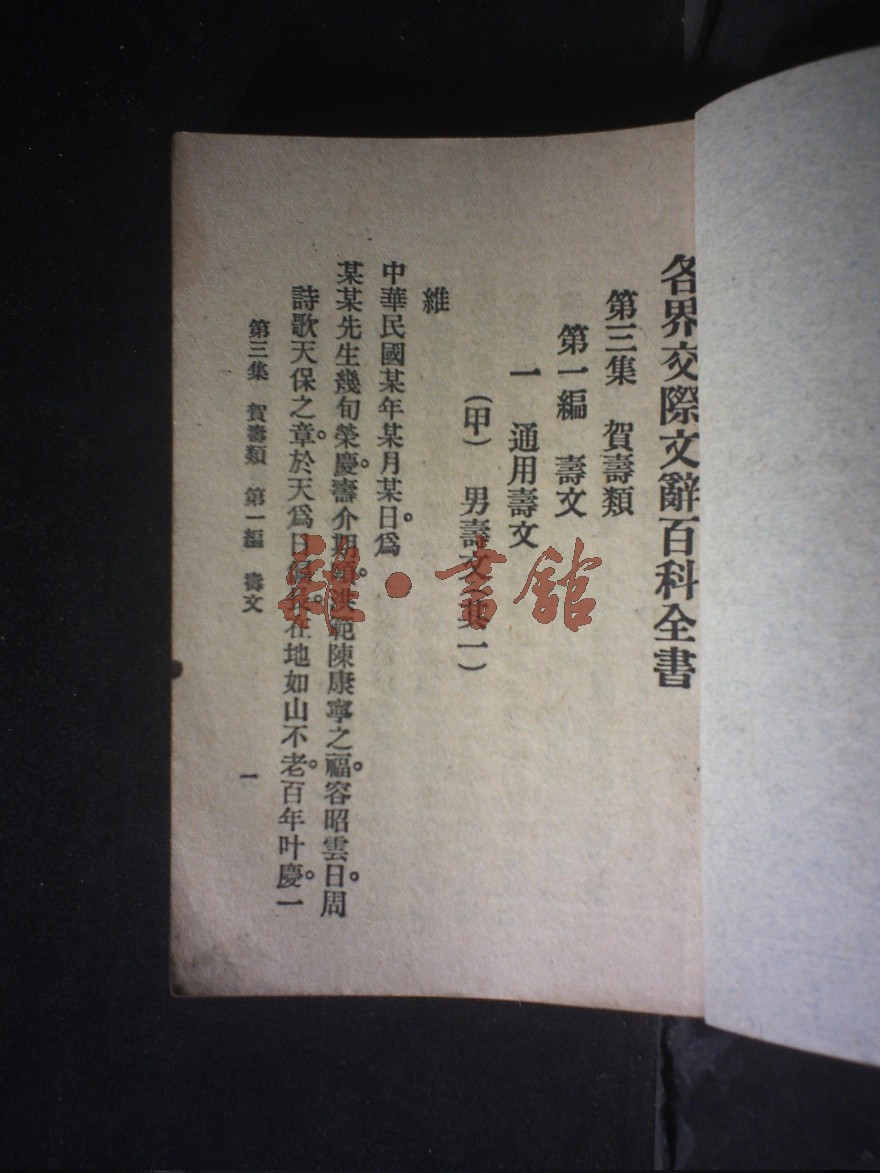 各界交際文辭百科全書
第三集 賀壽類
第一編 壽文
一 通用壽文
(甲) 男壽文(其一)
維
中華民國某年某月某日。為
某某先生幾旬榮慶。壽介期頤。洪範陳康寧之福。容昭雲日。周
詩歌天保之章。於天為日 在地如山不老。百年叶慶。一
第三集 賀壽類 第一編 壽文
一
雜·書館